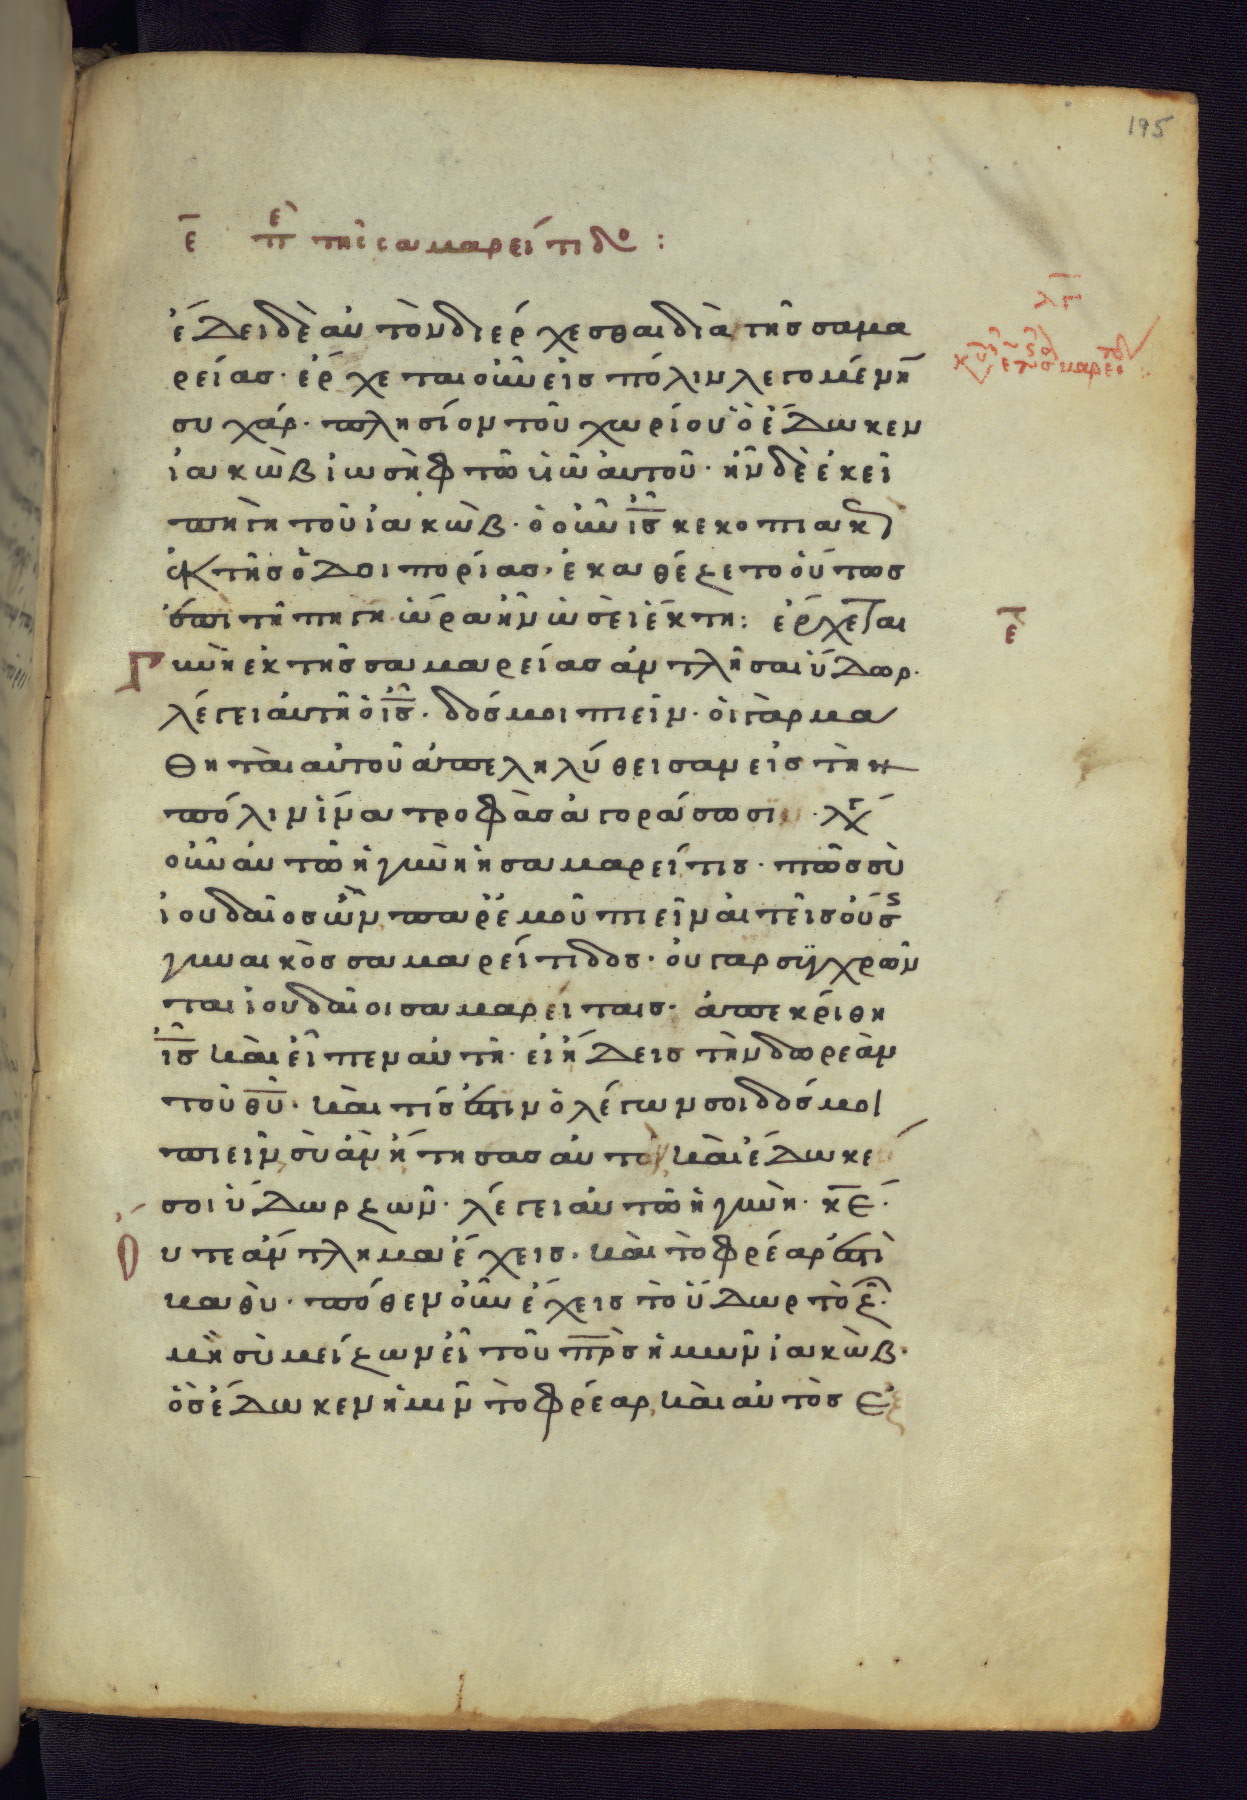 195
ε̅ περὶ τῆς σαμαρείτιδο :
ἔδει δὲ αὐτὸν διέρχεσθαι διὰ τῆς σαμα
ρείας· ἔρχεται οὖν εἰς πόλιν λεγομένη̅
συχάρ· πλησίον τοῦ χωρίου ὃ ἔδωκεν
ἰακὼβ ἰωσὴφ τῶ υἱῶ αὐτοῦ· ἦν δὲ ἐκεῖ
πηγὴ τοῦ ἰακὼβ· ὁ οὖν ι̅ς̅ κεκοπιακ
ἐκ τῆς ὁδοιπορίας, ἐκαθέζετο οὕτως
ἐπὶ τῆ πηγῆ· ὥρα ἦν ὡσεὶ ἕκτη: ἔρχεται
ε̅
Γυνὴ ἐκ τῆς σαμαρείας ἀντλῆσαι ὕδωρ·
λέγει αὐτῆ ὁ ι̅ς̅· δός μοι πιεῖν· οἱ γὰρ μα
θηταὶ αὐτοῦ ἀπεληλύθεισαν εἰς τὴν
πόλιν ἵνα τροφὰς ἀγοράσωσι· λέγ
οὖν αὐτῶ ἡ γυνὴ ἡ σαμαρείτις· πῶς σὺ
ἰουδαῖος ὢν, παρ' ἐμοῦ πιεῖν αἰτεῖς οὔσς
γυναικὸς σαμαρείτιδος· οὐ γὰρ συγχρῶν
ται ἰουδαῖοι σαμαρείταις· ἀπεκρίθη
ι̅ς̅ καὶ εἶπεν αὐτῆ· εἰ ἤδεις τὴν δωρεὰν
τοῦ θ̅υ̅· καὶ τίς ἐστιν ὁ λέγων σοι δός μοι
πιεῖν, σὺ ἂν ἤτησας αὐτὸ, καὶ ἔδωκέ
σοι ὕδωρ ζῶν· λέγει αὐτῶ ἡ γυνὴ· κ̅ε̅·
Οὔτε ἄντλημα ἔχεις· καὶ τὸ φρέαρ ἐστὶ
βαθὺ· πόθεν οὖν ἔχεις τὸ ὕδωρ τὸ ζῶ·
μὴ σὺ μείζων εἶ τοῦ π̅ρ̅ς̅ ἡμῶν ἰακὼβ·
ὃς ἔδωκεν ἡμῖν τὸ φρέαρ, καὶ αὐτὸς ἐξ